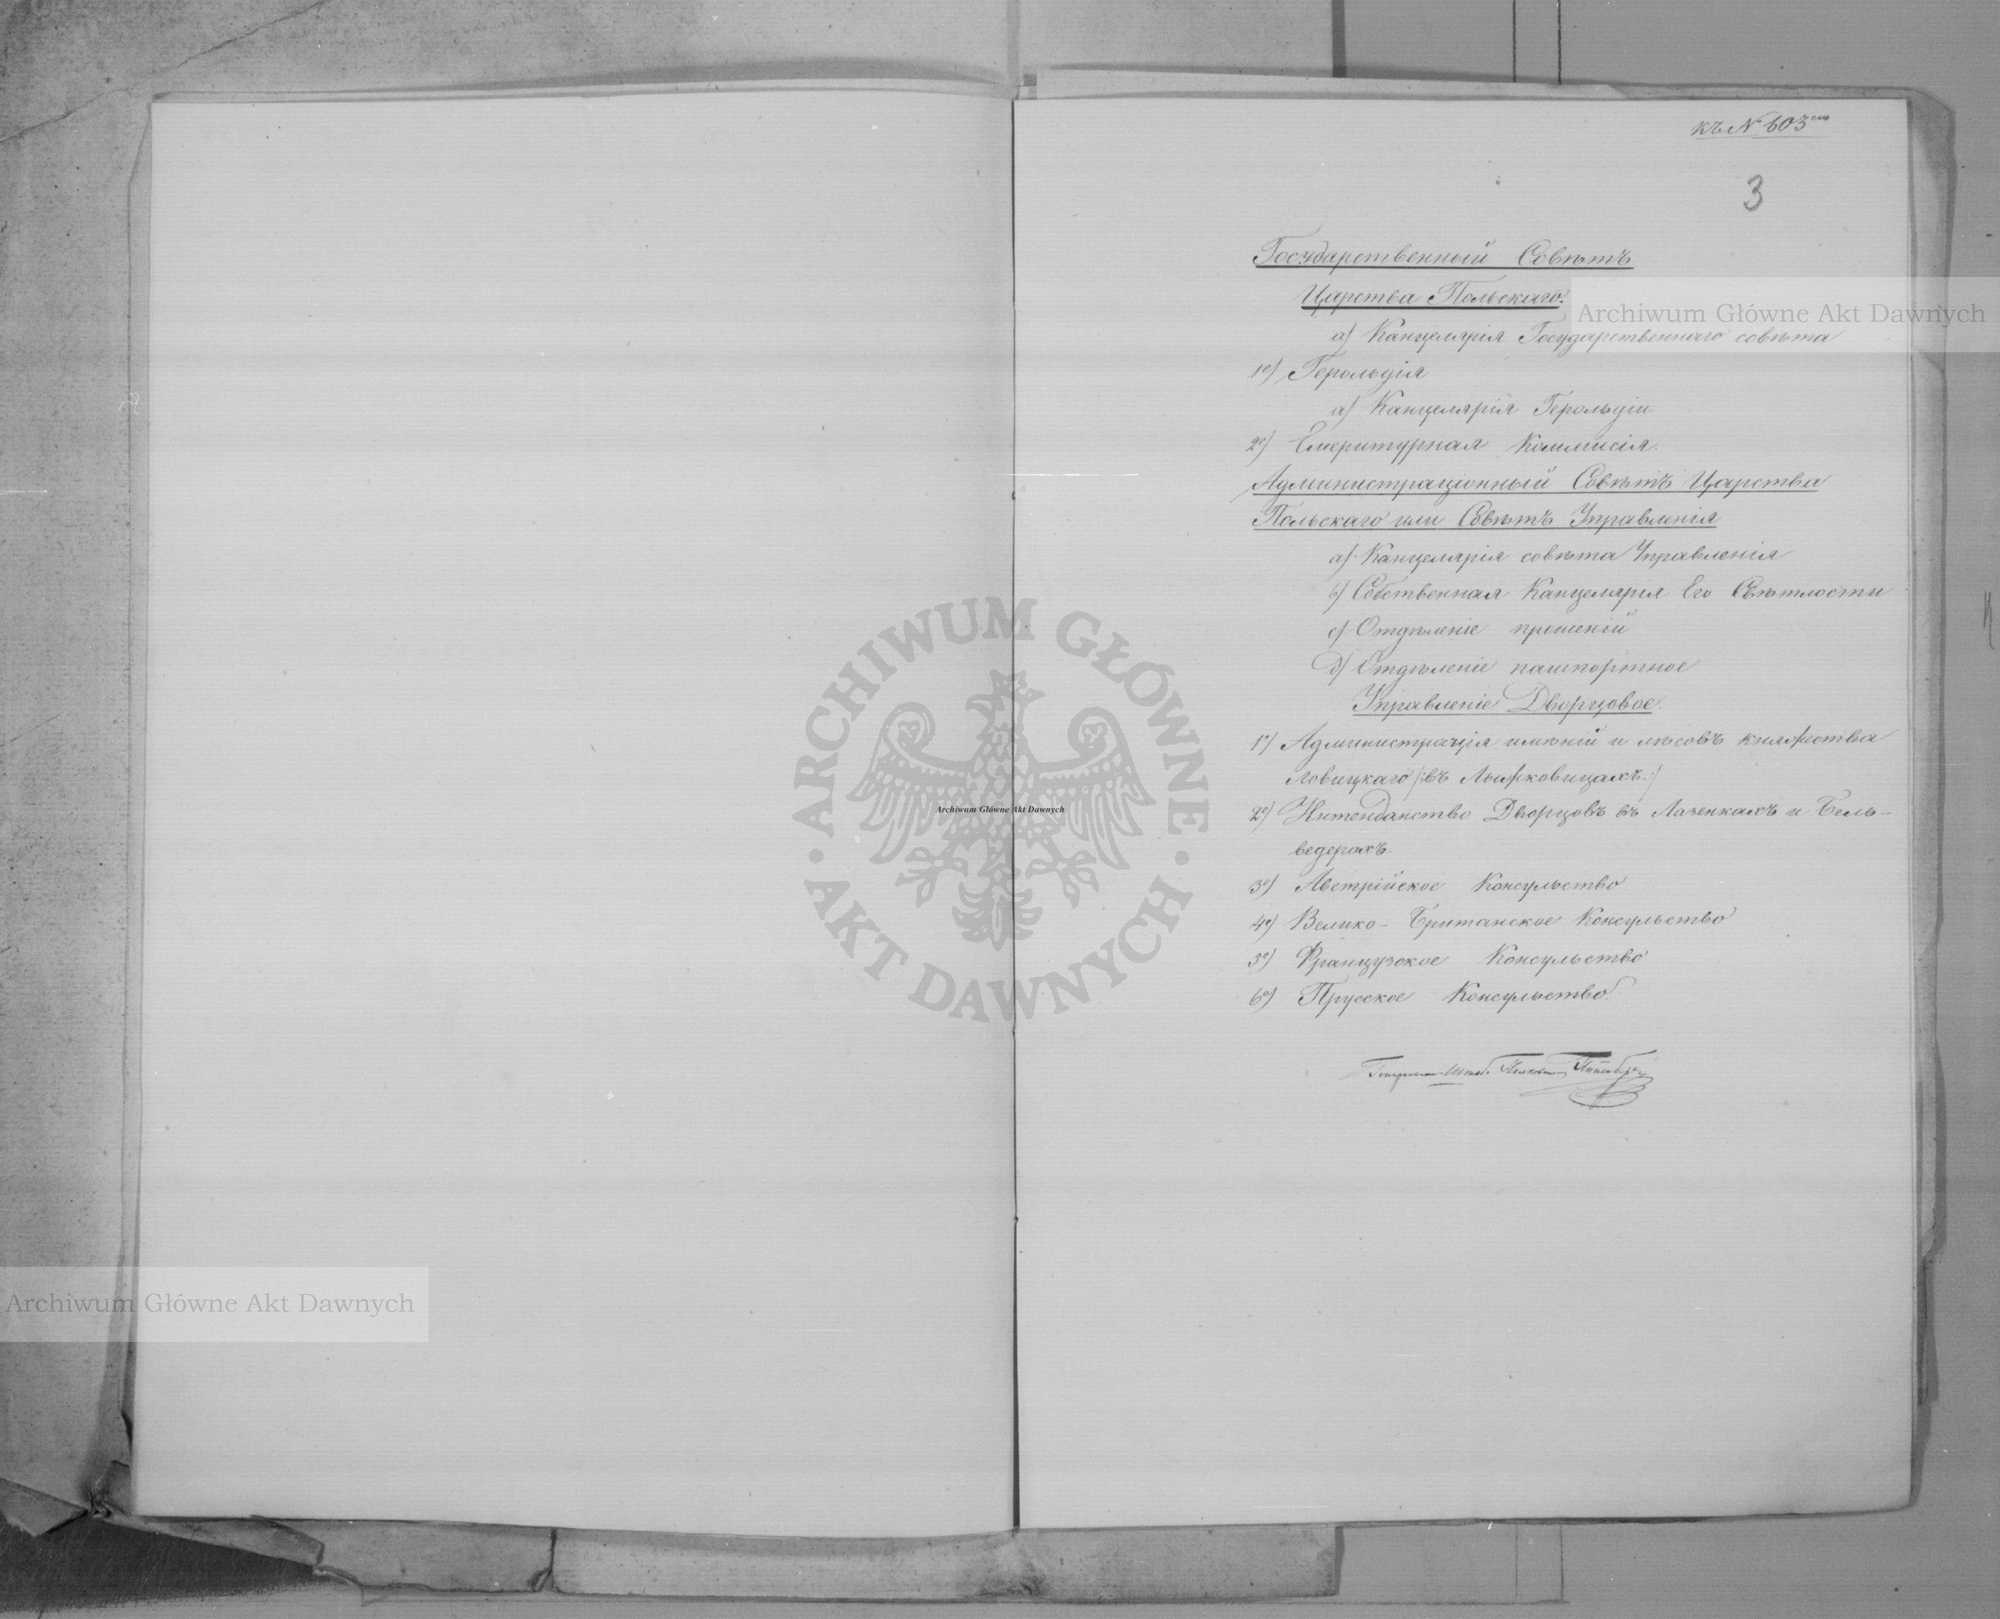 къ № 603
3
Государственный Совѣтъ
Царства Польскаго.
Archiwum Główne Akt Dawnych
а) Канцелярія Государственнаго совѣта
1е) Герольдія
а) Канцелярія Герольдіи
2е) Емеритурная Коммисія.
Администраціонный Совѣтъ Царства
Польскаго или Совѣтъ Управленія
а) Канцелярія совѣта Управленія
b) Собственная Канцелярія Его Свѣтлости
c) Отдѣленіе прошеній
d) Отдѣленіе пашпортное
Управленіе Дворцовое.
1е) Администрація имѣній и лѣсовъ княжества
Ловицкаго /:въ Лышковицахъ:/
2е) Интенданство Дворцовъ въ Лазенкахъ и Бель-
ведерахъ.
3е) Австрійское Консульство
4е) Велико-Британское Консульство
5е) Французское Консульство
6е) Прусское Консульство.
ARCHIWUM GŁÓWNE
· AKT DAWNYCH ·
Archiwum Główne Akt Dawnych
Archiwum Główne Akt Dawnych